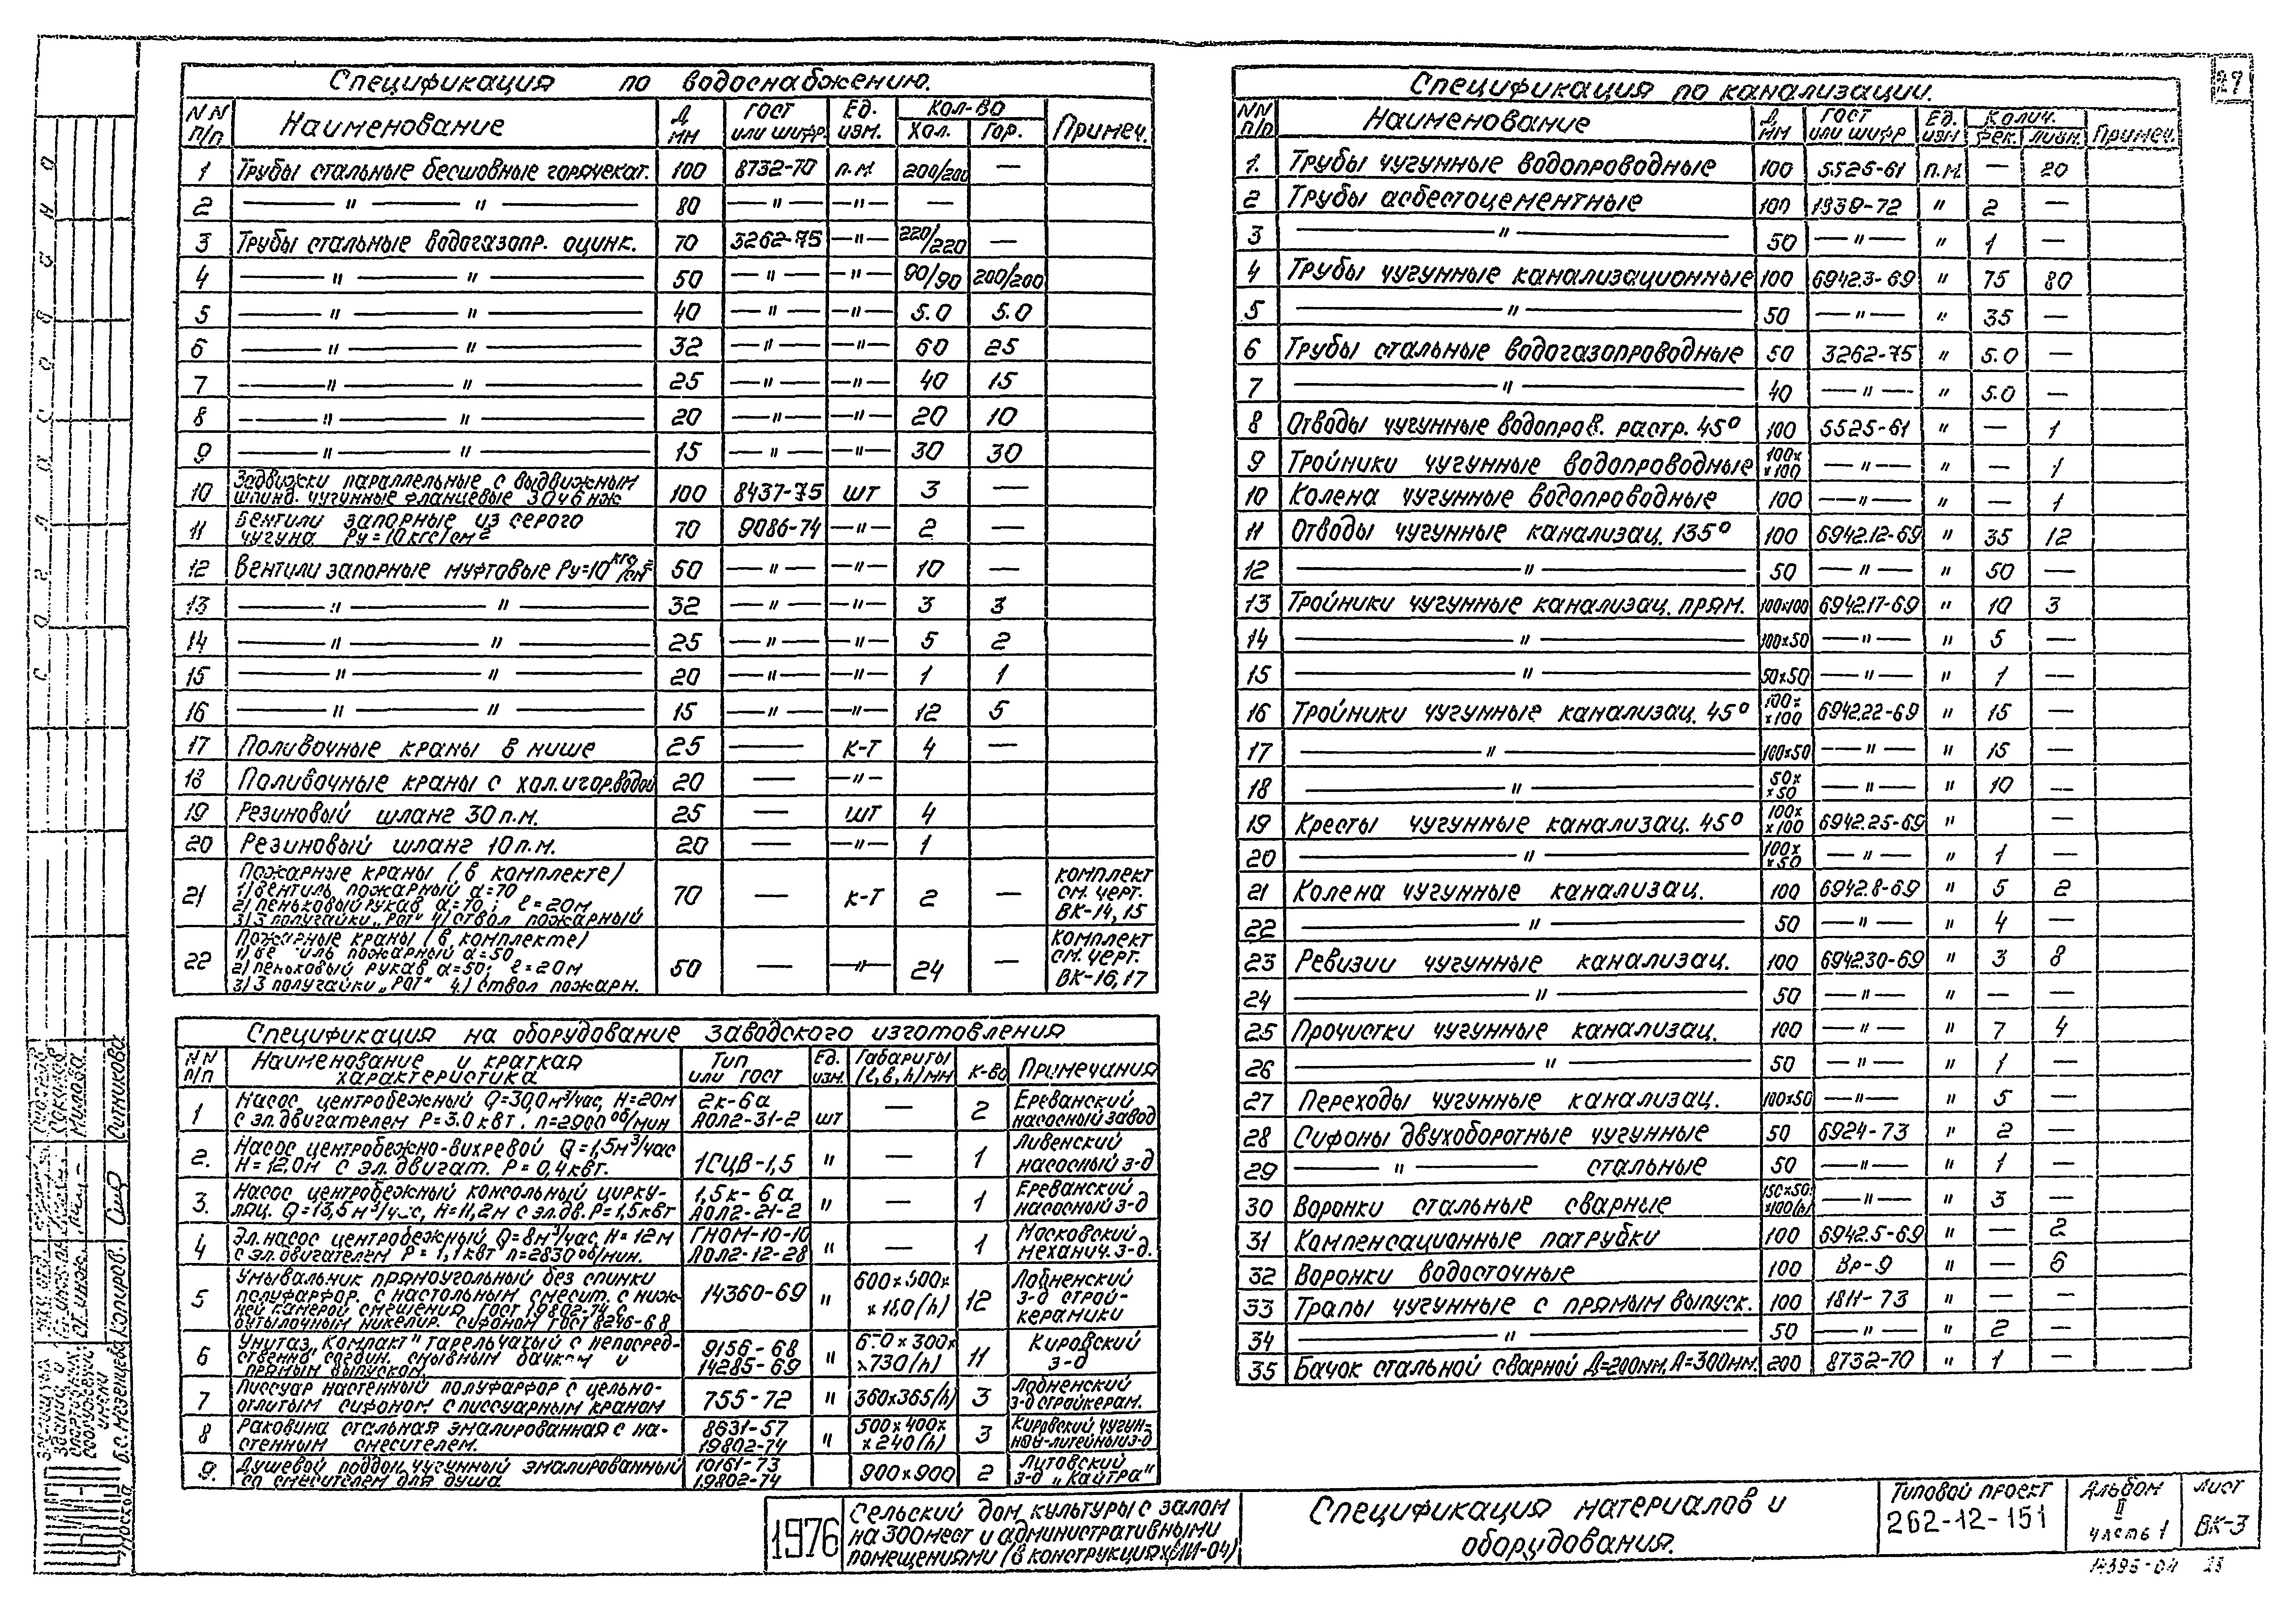 27
Спецификация по водоснабжению.
NN п/п Наименование Д мм ГОСТ или шифр Ед. изм. Кол-во Хол. Гор. Примеч.
1 Трубы стальные бесшовные горячекат. 100 8732-70 п.м 200/200 —
2 — " — " — 80 — " — — " — —
3 Трубы стальные водогазопр. оцинк. 70 3262-75 — " — 220/220 —
4 — " — " — 50 — " — — " — 90/90 200/200
5 — " — " — 40 — " — — " — 5.0 5.0
6 — " — " — 32 — " — — " — 60 25
7 — " — " — 25 — " — — " — 40 15
8 — " — " — 20 — " — — " — 20 10
9 — " — " — 15 — " — — " — 30 30
10 Задвижки параллельные с выдвижным
шпинд. чугунные фланцевые 30ч6нж 100 8437-75 шт 3 —
11 Вентили запорные из серого
чугуна Ру=10кгс/см² 70 9086-74 — " — 2 —
12 Вентили запорные муфтовые Ру=10 кгс/см² 50 — " — — " — 10 —
13 — " — " — 32 — " — — " — 3 3
14 — " — " — 25 — " — — " — 5 2
15 — " — " — 20 — " — — " — 1 1
16 — " — " — 15 — " — — " — 12 5
17 Поливочные краны в нише 25 — к-т 4 —
18 Поливочные краны с хол.и гор.водой 20 — — " —
19 Резиновый шланг 30п.м. 25 — шт 4
20 Резиновый шланг 10п.м. 20 — — " — 1
21 Пожарные краны (в комплекте)
1) вентиль пожарный d=70
2) пеньковый рукав d=70; ℓ=20м
3) 3 полугайки „РОТ" 4) ствол пожарный 70 — к-т 2 — комплект см. черт. ВК-14, 15
22 Пожарные краны (в комплекте)
1) ве иль пожарный d=50
2) пеньковый рукав d=50; ℓ=20м
3) 3 полугайки „РОТ" 4.) ствол пожарн. 50 — — " — 24 — комплект см. черт. ВК-16, 17
Спецификация на оборудование заводского изготовления
NN п/п Наименование и краткая характеристика Тип или ГОСТ Ед. изм. Габариты (l,b,h) мм К-во Примечания
1 Насос центробежный Q=30,0м³/час, H=20м
с эл.двигателем P=3.0 квт. n=2900 об/мин 2к-6а АОЛ2-31-2 шт — 2 Ереванский насосный завод
2. Насос центробежно-вихревой Q=1,5м³/час
H=12.0м с эл. двигат. P=0,4квт. 1СЦВ-1,5 " — 1 Ливенский насосный з-д
3. Насос центробежный консольный цирку-
ляц. Q=13,5м³/час, H=11,2м с эл.дв. P=1,5квт 1,5к-6а АОЛ2-21-2 " — 1 Ереванский насосный з-д
4 Эл.насос центробежный Q=8м³/час, H=12м
с эл. двигателем P=1,1квт n=2830 об/мин. ГНОМ-10-10 АОЛ2-12-28 " — 1 Московский механич. з-д.
5 Умывальник прямоугольный без спинки
полуфарфор. с настольным смесит. с ниж-
ней камерой смешения ГОСТ 19802-74 с
бутылочным никелир. сифоном ГОСТ 8246-68 14360-69 " 600×500××180(h) 12 Лобненский з-д строй-керамики
6 Унитаз „Компакт" тарельчатый с непосред-
ственно соедин. смывным бачком и
прямым выпуском. 9156-68 14285-69 " ×300××730(h) 11 Кировский з-д
7 Писсуар настенный полуфарфор с цельно-
отлитым сифоном с писсуарным краном 755-72 " 360×365(h) 3 Лобненский з-д стройкерам.
8 Раковина стальная эмалированная с на-
стенным смесителем. 8631-57 19802-74 " 500×400××240(h) 3 Кировский чугун-но-литейный з-д
9. Душевой поддон чугунный эмалированный
со смесителем для душа 10161-73 19802-74 900×900 2 Литовский з-д „Кайтра"
Спецификация по канализации.
NN п/п Наименование Д мм ГОСТ или шифр Ед. изм Колич. фек. ливн. Примеч.
1. Трубы чугунные водопроводные 100 5525-61 п.м — 20
2 Трубы асбестоцементные 100 1839-72 " 2 —
3 — " — 50 — " — " 1 —
4 Трубы чугунные канализационные 100 6942.3-69 " 75 80
5 — " — 50 — " — " 35 —
6 Трубы стальные водогазопроводные 50 3262-75 " 5.0 —
7 — " — 40 — " — " 5.0 —
8 Отводы чугунные водопров. растр. 45° 100 5525-61 " — 1
9 Тройники чугунные водопроводные 100××100 — " — " — 1
10 Колена чугунные водопроводные 100 — " — " — 1
11 Отводы чугунные канализац. 135° 100 6942.12-69 " 35 12
12 — " — 50 — " — " 50 —
13 Тройники чугунные канализац. прям. 100×100 6942.17-69 " 10 3
14 — " — 100×50 — " — " 5 —
15 — " — 50×50 — " — " 1 —
16 Тройники чугунные канализац. 45° 100××100 6942.22-69 " 15 —
17 — " — 100×50 — " — " 15 —
18 — " — 50××50 — " — " 10 —
19 Кресты чугунные канализац. 45° 100××100 6942.25-69 " —
20 — " — 100××50 — " — " 1 —
21 Колена чугунные канализац. 100 6942.8-69 " 5 2
22 — " — 50 — " — " 4 —
23 Ревизии чугунные канализац. 100 6942.30-69 " 3 8
24 — " — 50 — " — " — —
25 Прочистки чугунные канализац. 100 — " — " 7 4
26 — " — 50 — " — " 1 —
27 Переходы чугунные канализац. 100×50 — " — " 5 —
28 Сифоны двухоборотные чугунные 50 6924-73 " 2 —
29 — " — стальные 50 — " — " 1 —
30 Воронки стальные сварные 150×50××100(h) — " — " 3 —
31 Компенсационные патрубки 100 6942.5-69 " — 2
32 Воронки водосточные 100 Вр-9 " — 6
33 Трапы чугунные с прямым выпуск. 100 1811-73 " — —
34 — " — 50 — " — " 2 —
35 Бачок стальной сварной Д=200мм, A=300мм. 200 8732-70 " 1 —
1976
Сельский дом культуры с залом
на 300 мест и административными
помещениями (в конструкциях ИИ-04)
Спецификация материалов и
оборудования.
Типовой проект
262-12-151
Альбом
II
часть 1
Лист
ВК-3
Согласовано
Милова
Ситникова
Ст. инж.
Копиров.
Мезенцева
Москва